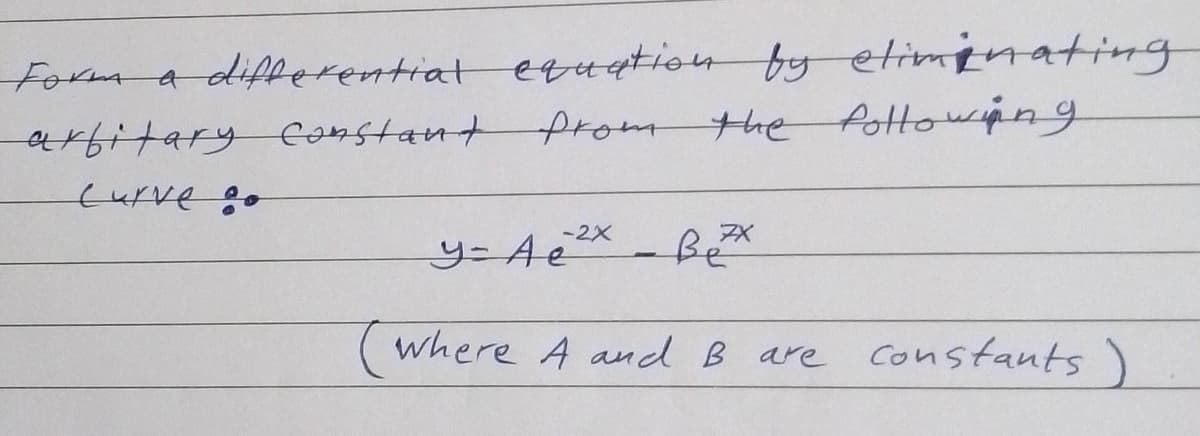 Form a differential equation by eliminating
arbitary constant from the following
Curve :-
y = Ae^-2x - Be^7x
(where A and B are constants)